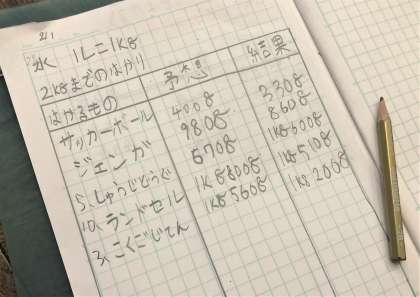 2/1
水 1L=1kg
2kgまでのはかり
はかるもの 予想 結果
サッカーボール 400g 330g
ジェンガ 980g 860g
5、しゅうじどうぐ 670g 1kg600g
10、ランドセル 1kg800g 1kg510g
3、こくごじてん 1kg560g 1kg200g